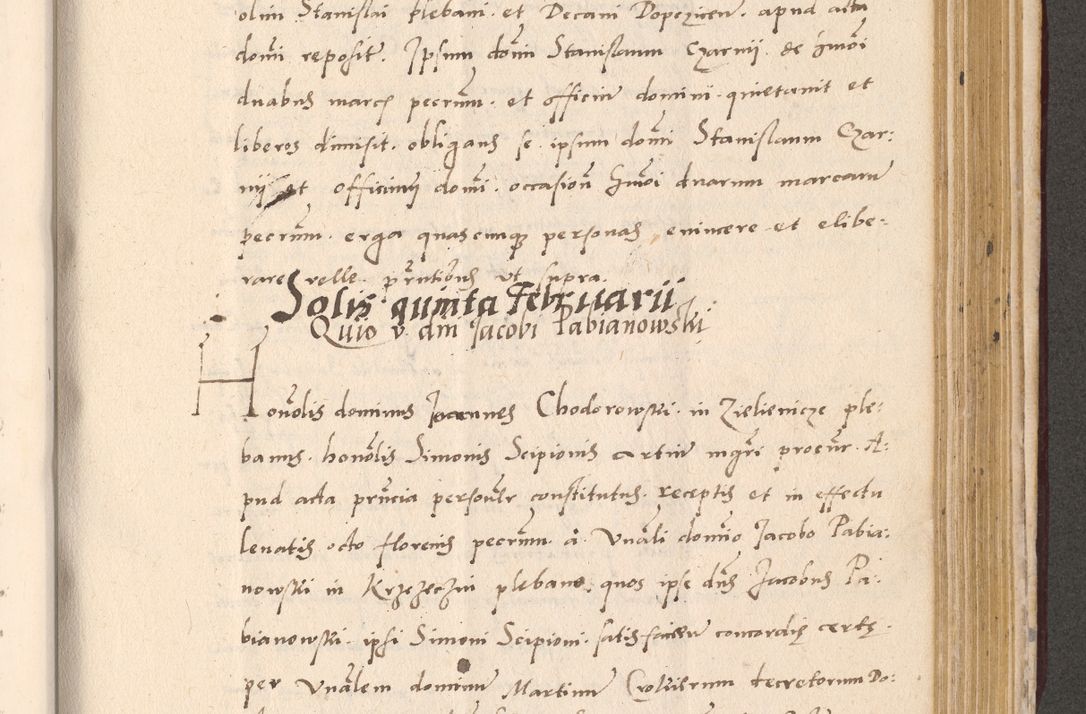 olim Stanislai plebani et Decani Dopczicen. apud acta
domi reposit. Ipsum domi Stanislaum Czarnij de hmoi
duabus marcs pecrum. et officiu domini quietauit et
liberos dimisit. obligans se ipsum domi Stanislaum Czar:
nij et officiumq domi. occasion hmoi duarum marcaru
pecrum. erga quascumq personas evincere et elibe:
rare velle. pntibus vt supra.
Solis quinta Februarii
Quio v. dni Jacobi Pabianowskj
Honolis dominus Joannes Chodorowski in Zielienicze ple:
banus. honolis Simonis Scipionis artiu mgri procur. A:
pud acta pncia personlr constitutus. receptis et in effectu
leuatis octo florenis pecrum. a Vnali domio Jacobo Pabia:
nowski in Krzeczin plebano. quos ipse dns Jacobus Pa:
bianowski. ipsi Simoni Scipioni. satisfacieu concordię certę.
per Vnalem dominu Martinu decretorum Do: